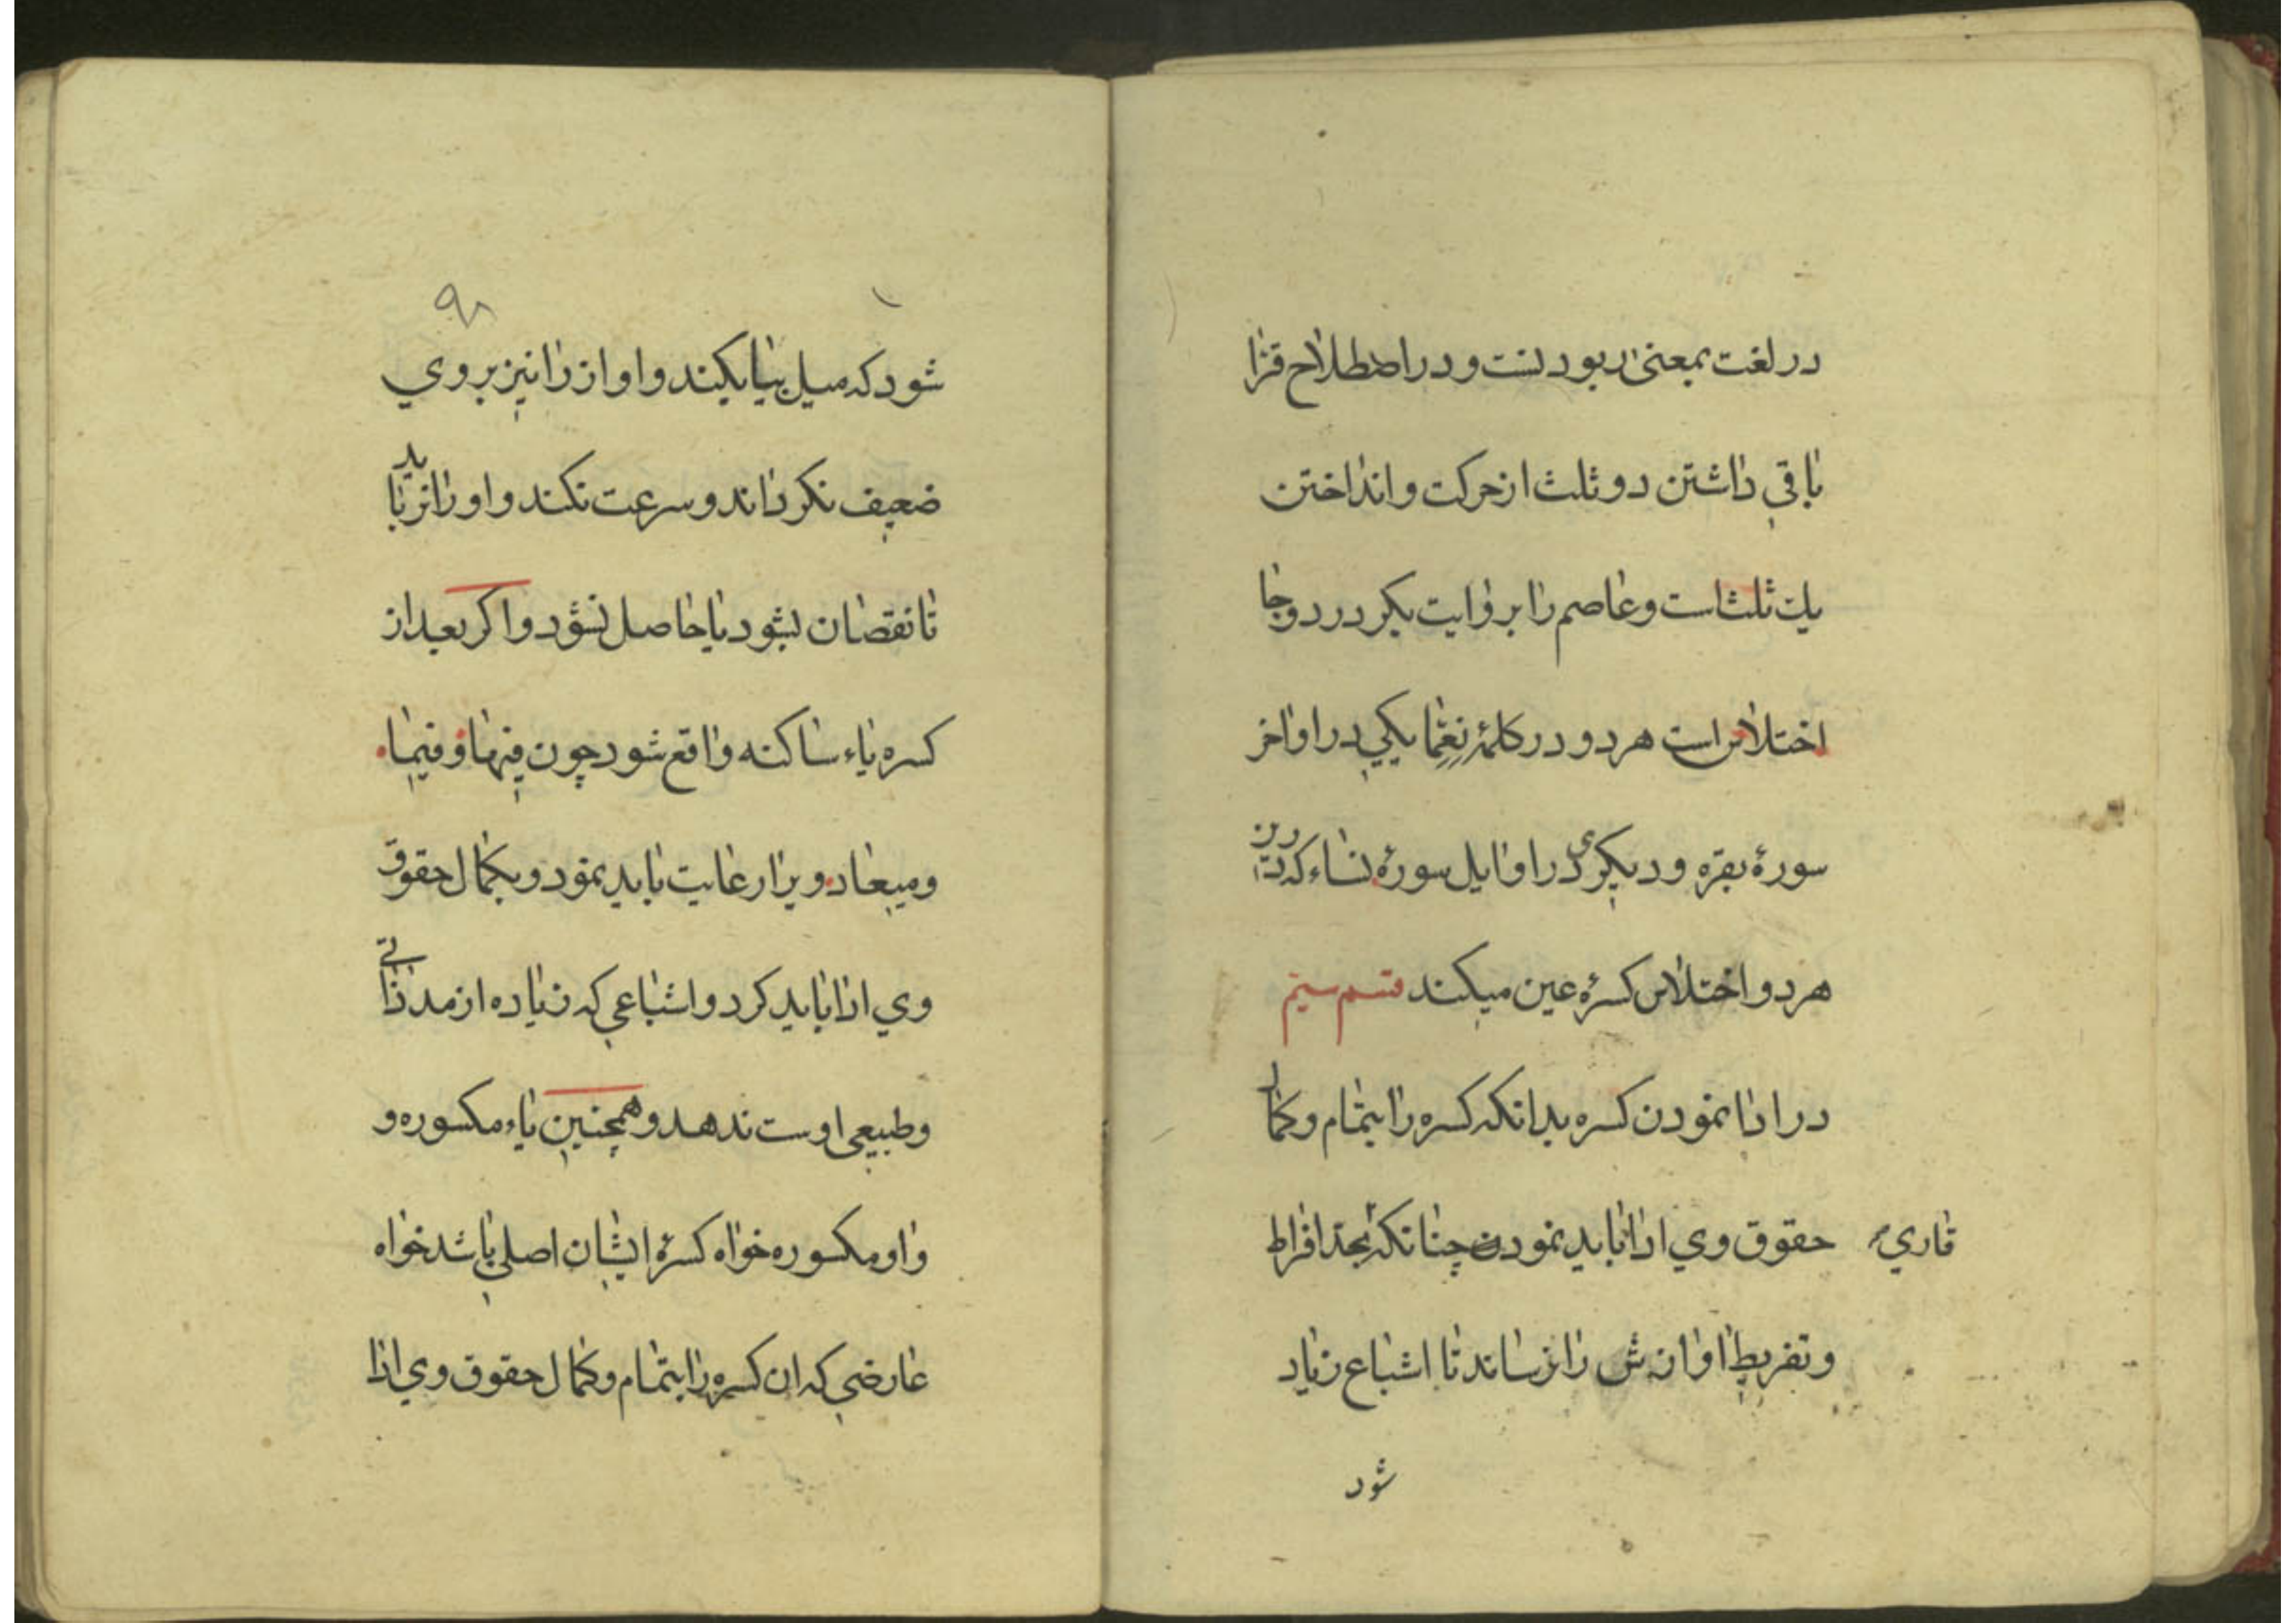 در لغت بمعنی ربودنست و در اصطلاح قرّا
باقی داشتن دو ثلث از حرکت و انداختن
یك ثلثاست و عاصم را بر وایت بکر در دو جا
اختلاس است هر دو در کلمۀ نِعِمّا یکی در اواخر
سورۀ بقره و دیکری در اوایل سورۀ نساء که درین
هر دو اختلاس کسرۀ عین میکند قسم سیم
در ادا نمودن کسره بدانکه کسره را بتمام و کمال
قاری حقوق وی ادا باید نمودن چنانکه بحدّ افراط
و تفریط اوازش را نرساند تا اشباع زیاد
شود
۹۸
شود که میل بیا بکند و اواز را نیز بروی
ضعیف نکرداند و سرعت نکند و او را نرباید
تا نقصان بشود یا حاصل نشود و اکر بعد از
کسره یاء ساکنه واقع شود چون فیها و فیما
و میعاد ویرا رعایت باید نمود و بکمال حقوق
وی ادا باید کرد و اشباعی که زیاده از مد ذاتی
و طبیعی اوست ندهد و همچنین یاء مکسوره و
واو مکسوره خواه کسرۀ ایشان اصلی باشد خواه
عارضی که ان کسره را بتمام و کمال حقوق وی ادا